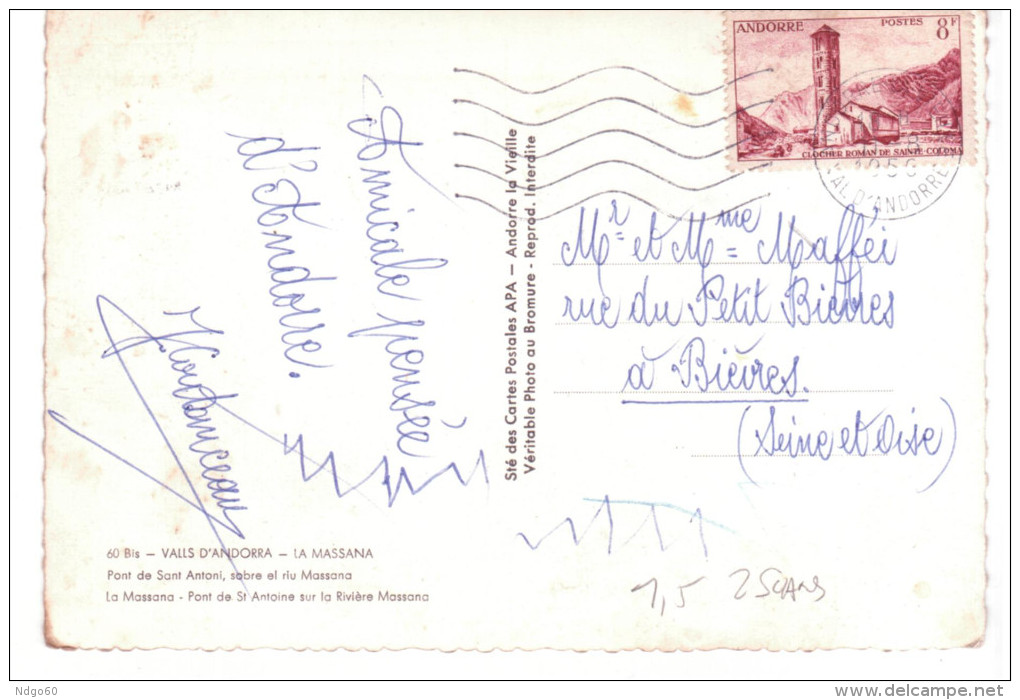 ANDORRE POSTES 8F
CLOCHER ROMAN DE SAINTE-COLOMA
VAL D'ANDORRE
Amicale pensée
d'Andorre.
Sté des Cartes Postales APA — Andorre la Vieille
Véritable Photo au Bromure - Reprod. Interdite
Mr et Mme Mafféi
rue du Petit Bièvres
à Bièvres.
(Seine et Oise)
60 Bis — VALLS D'ANDORRA — LA MASSANA
Pont de Sant Antoni, sobre el riu Massana
La Massana - Pont de St Antoine sur la Rivière Massana
1,5 2 SCANS
Ndgo60
www.delcampe.net